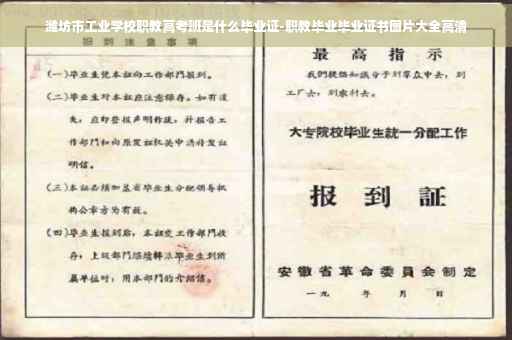 潍坊市工业学校职教高考班是什么毕业证-职教毕业毕业证书图片大全高清
报到注意事项
(一)毕业生凭本证向工作部门报到。
(二)毕业生对本证应注意保存。如有遗
失,应即登报声明作废,并报告工
作部门和向原发证机关申请补发证
明信。
(三)本证必须加盖省毕业生分配领导机
构公章方为有效。
(四)毕业生报到后,本证交工作部门收
存;上级部门继续转派毕业生到所
属单位时,用本部门的介绍信。
最高指示
我們提倡知識分子到羣众中去,到
工厂去,到农村去。
大专院校毕业生統一分配工作
报到証
安徽省革命委員会制定
一九 年 月 日